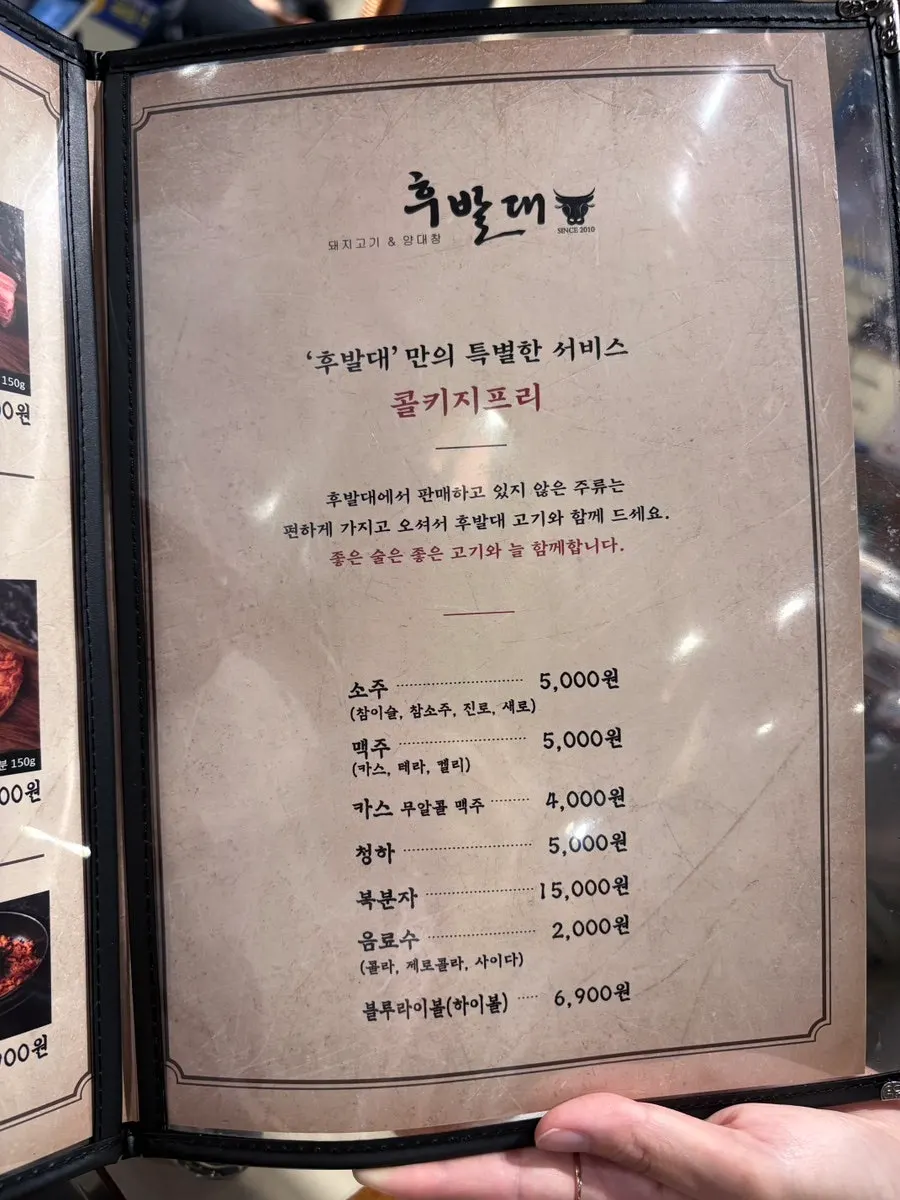 150g
00원
분 150g
00원
900원
후발대
SINCE 2010
돼지고기 & 양대창
‘후발대’만의 특별한 서비스
콜키지프리
후발대에서 판매하고 있지 않은 주류는
편하게 가지고 오셔서 후발대 고기와 함께 드세요.
좋은 술은 좋은 고기와 늘 함께합니다.
소주 5,000원
(참이슬, 참소주, 진로, 새로)
맥주 5,000원
(카스, 테라, 켈리)
카스 무알콜 맥주 4,000원
청하 5,000원
복분자 15,000원
음료수 2,000원
(콜라, 제로콜라, 사이다)
블루라이볼(하이볼) 6,900원